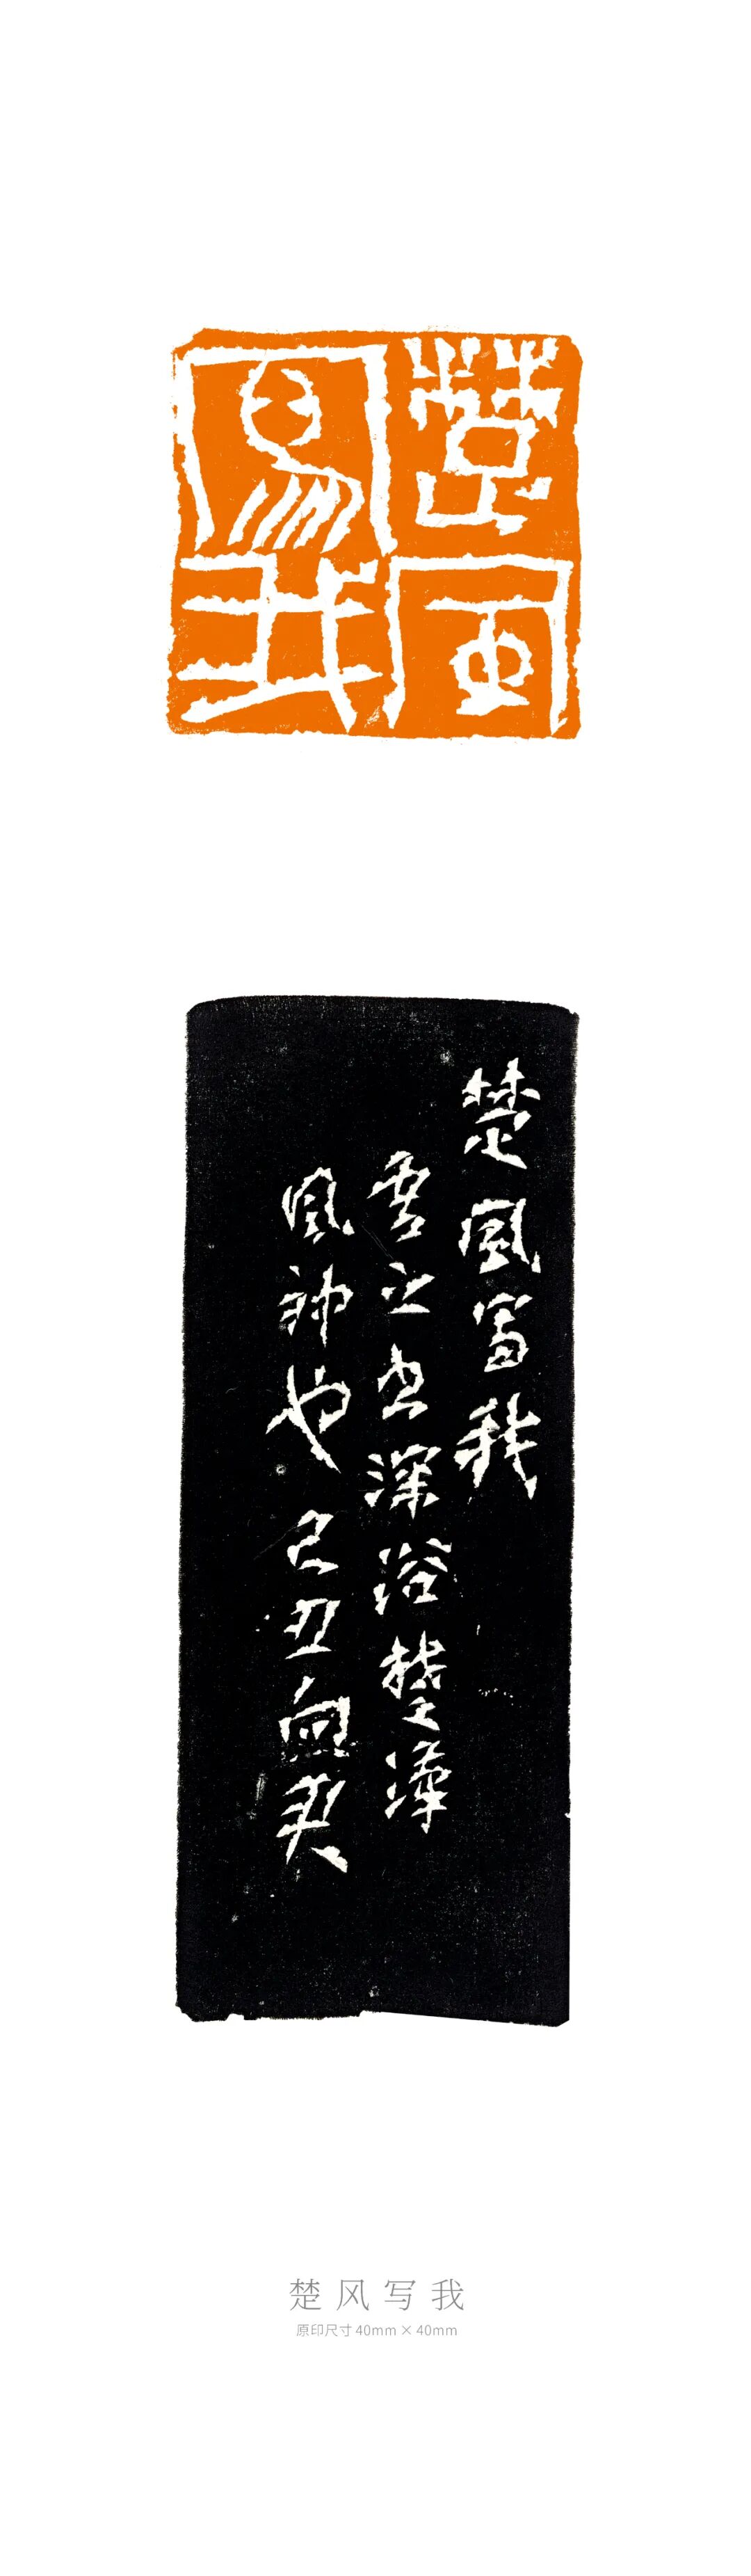 楚風寫我
楚風寫我
雲之書深浴楚漢
風神也己丑血史
楚风写我
原印尺寸 40mm × 40mm